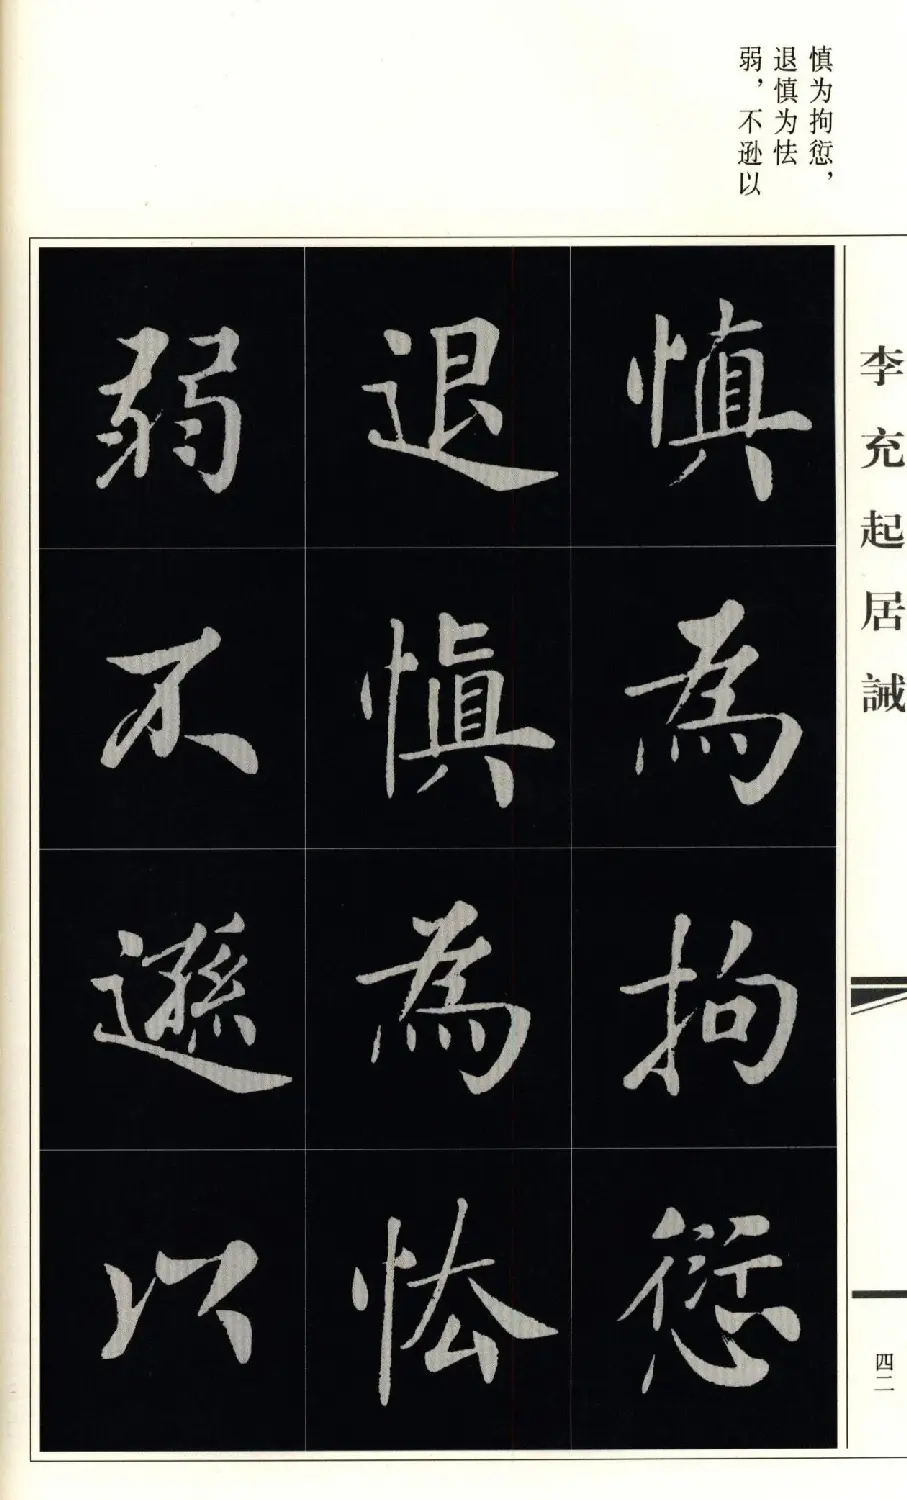 慎为拘愆，
退慎为怯
弱，不逊以
李充起居誡
慎為拘愆
退慎為怯
弱不遜以
四二